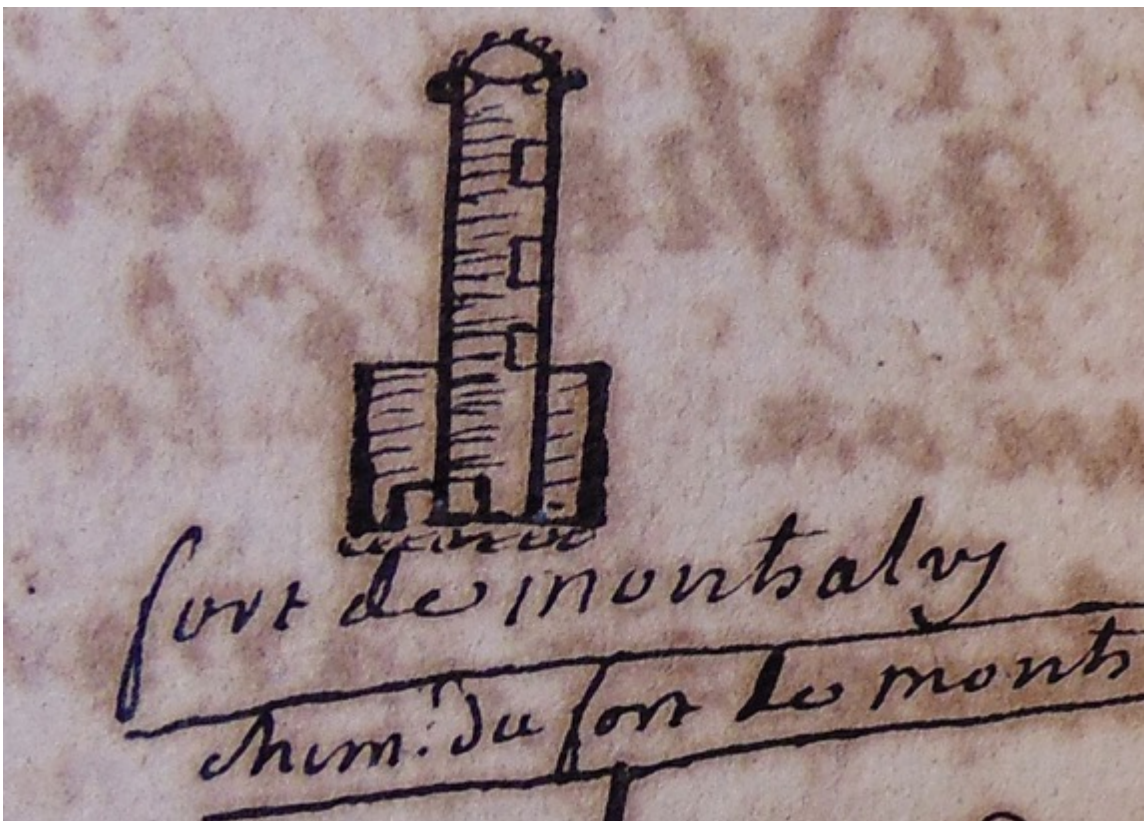 fort de monthalvy
chem: du fort de month